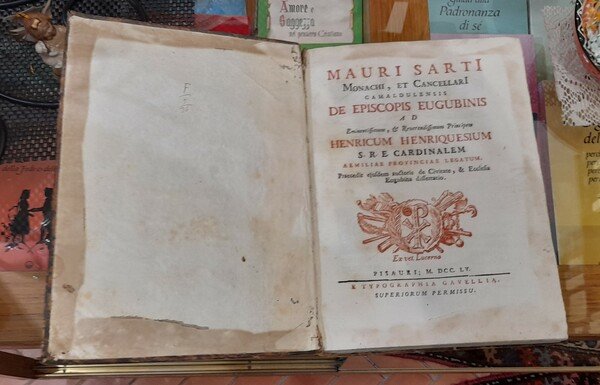 Amore e
Saggezza
nel pensiero Cristiano
Padronanza
di sé
F
MAURI SARTI
MONACHI, ET CANCELLARI
CAMALDULENSIS
DE EPISCOPIS EUGUBINIS
AD
Eminentissimum, & Reverendissimum Principem
HENRICUM HENRIQUESIUM
S. R. E. CARDINALEM
AEMILIAE PROVINCIAE LEGATUM.
Praecedit ejusdem auctoris de Civitate, & Ecclesia
Eugubina dissertatio.
Ex vet. Lucerna
PISAURI; M. DCC. LV.
E TYPOGRAPHIA GAVELLIA.
SUPERIORUM PERMISSU.